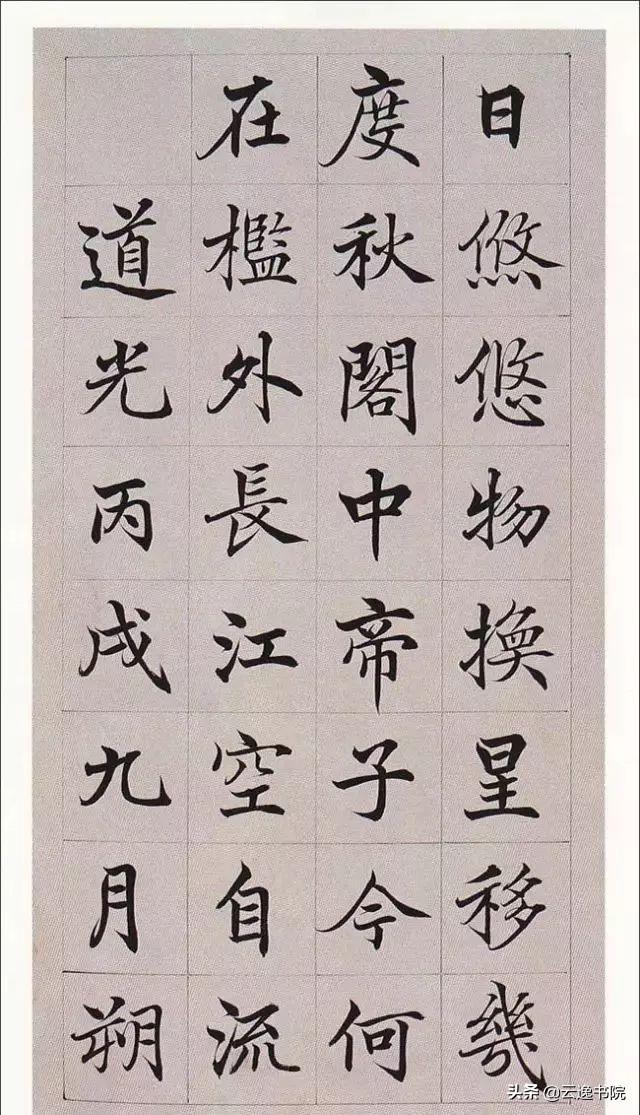 日悠悠物換星移幾
度秋閣中帝子今何
在檻外長江空自流
道光丙戌九月朔
头条 @云逸书院